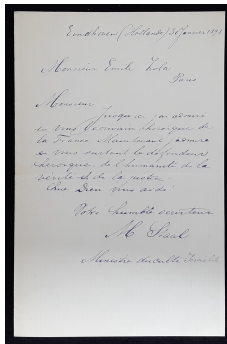 Eindhoven (Hollande) 30 Janvier 1898
Monsieur Emile Zola
Paris
Monsieur
Jusqu'a
en vous l'ecrivain heroique de
la France Maintenant j'admire
en vous surtout le défenseur
héroique de l'humanité de la
vérité et de la justice
Que Dieu vous aide!
Votre humble serviteur
M
Ministre du culte Israelite